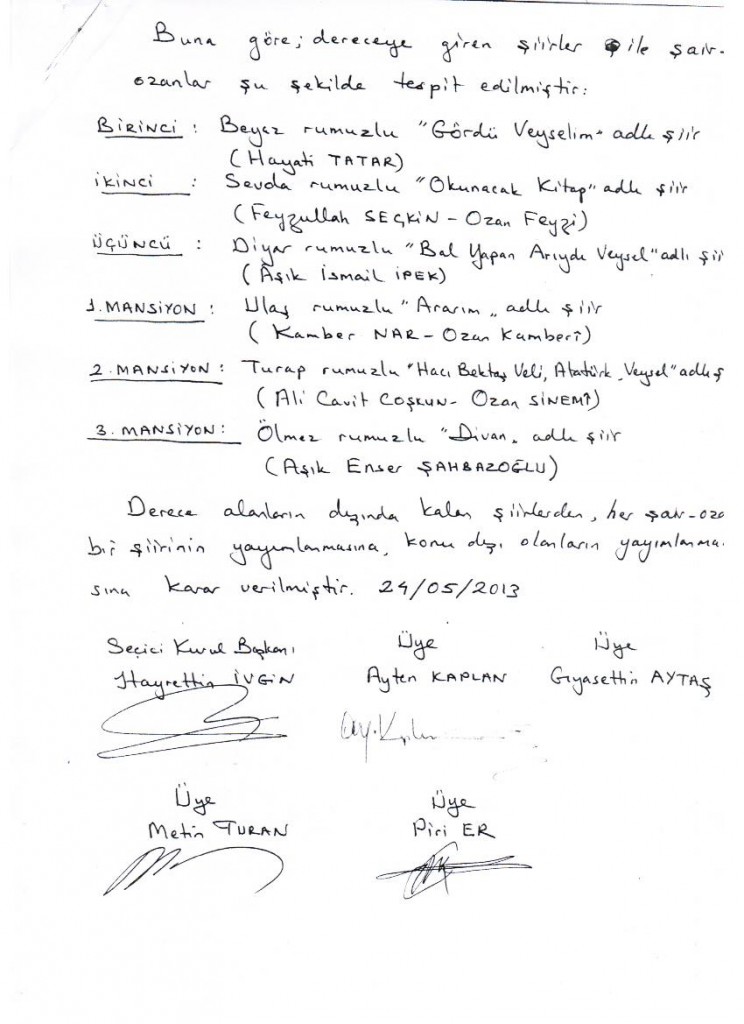 Buna göre; dereceye giren şiirler ile şair-
ozanlar şu şekilde tespit edilmiştir:
BİRİNCİ : Beyaz rumuzlu "Gördü Veyselim" adlı şiir
(Hayati TATAR)
İKİNCİ : Sevda rumuzlu "Okunacak Kitap" adlı şiir
(Feyzullah SEÇKİN - Ozan Feyzi)
ÜÇÜNCÜ : Diyar rumuzlu "Bal Yapan Arıydı Veysel" adlı şii
(Âşık İsmail İPEK)
1. MANSİYON : Ulaş rumuzlu "Ararım" adlı şiir
(Kamber NAR - Ozan Kamberî)
2. MANSİYON : Turap rumuzlu "Hacı Bektaş Veli, Atatürk, Veysel" adlı ş
(Ali Cavit COŞKUN - Ozan SİNEMÎ)
3. MANSİYON : Ölmez rumuzlu "Divan" adlı şiir
(Aşık Enser ŞAHBAZOĞLU)
Derece alanların dışında kalan şiirlerden, her şair-oza
bir şiirinin yayımlanmasına, konu dışı olanların yayımlanma-
sına karar verilmiştir. 24/05/2013
Seçici Kurul Başkanı Üye Üye
Hayrettin İVGİN Ayten KAPLAN Gıyasettin AYTAŞ
Ay.Kaplan
Üye Üye
Metin TURAN Piri ER